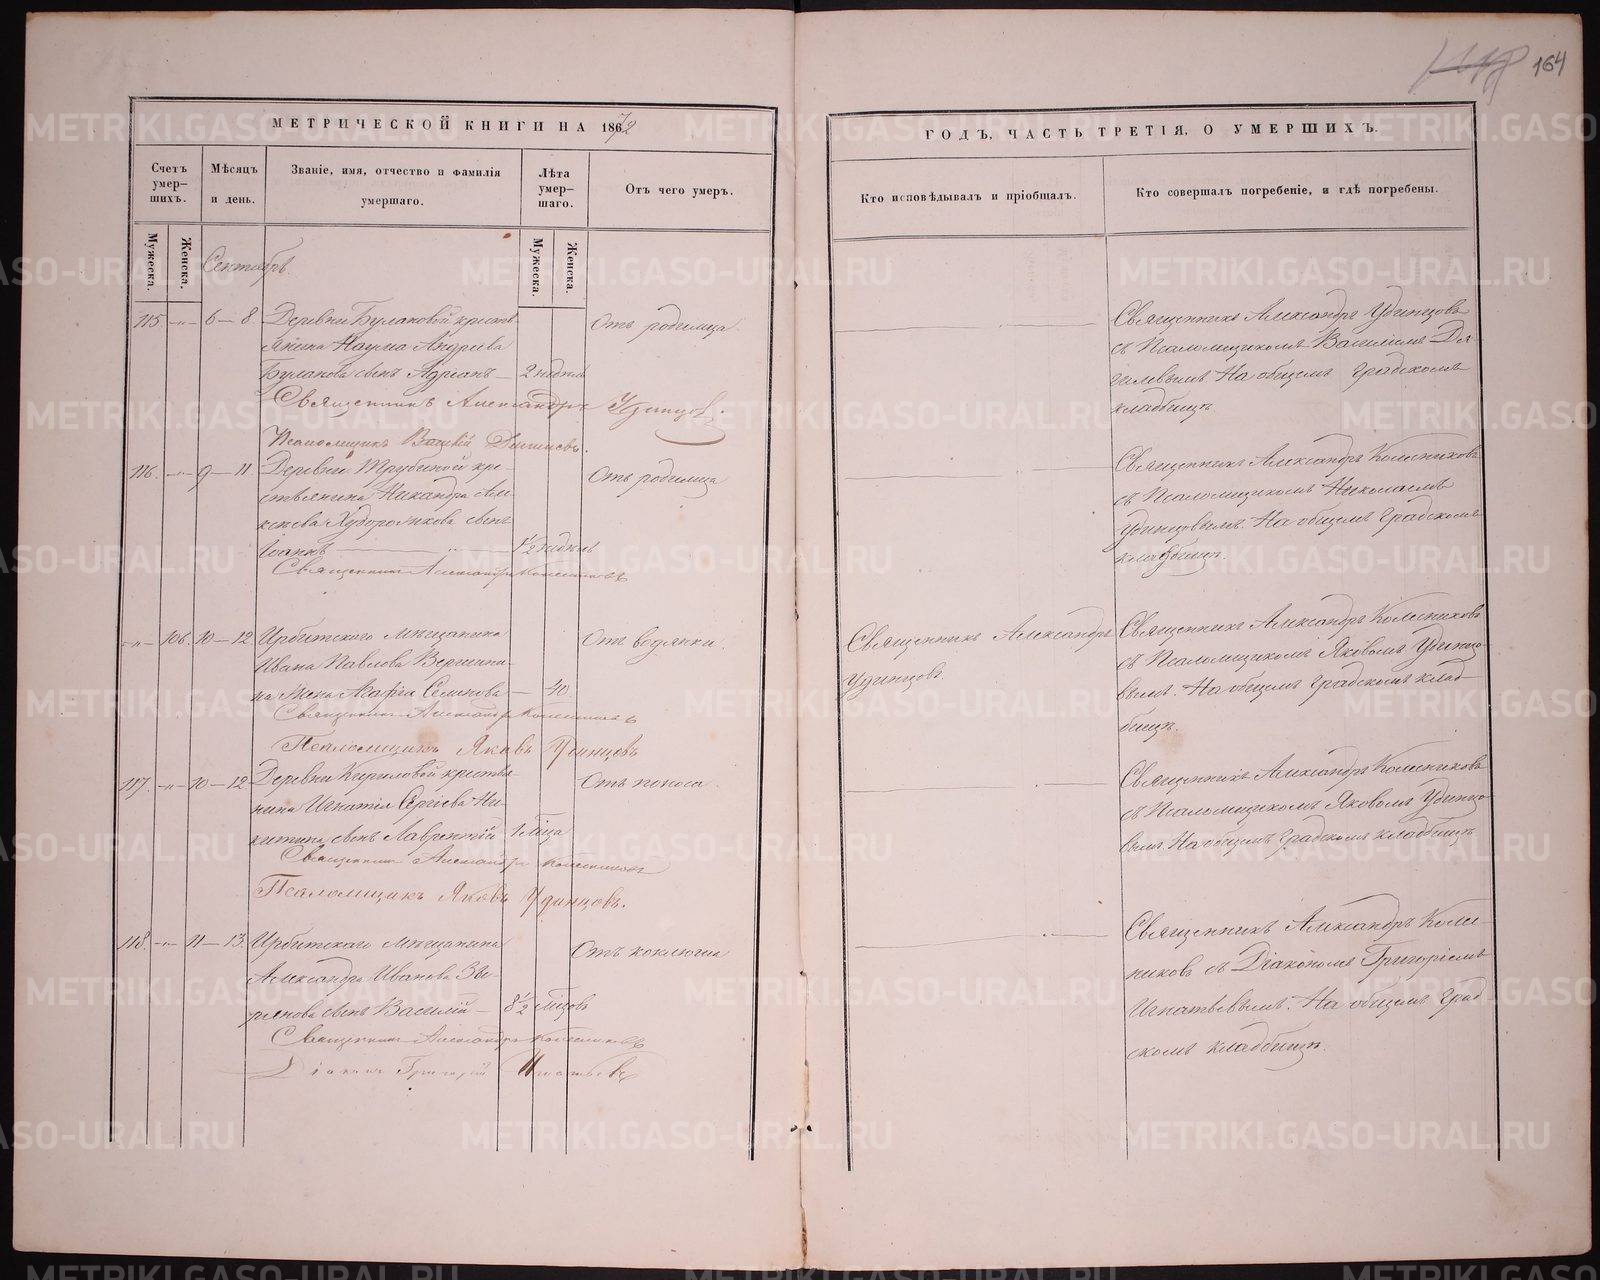 164
МЕТРИЧЕСКОЙ КНИГИ НА 1872
ГОДЪ, ЧАСТЬ ТРЕТІЯ, О УМЕРШИХЪ.
Счетъ умер-шихъ.
Мѣсяцъ и день.
Званіе, имя, отчество и фамилія умершаго.
Лѣта умер-шаго.
Отъ чего умеръ.
Кто исповѣдывалъ и пріобщалъ.
Кто совершалъ погребеніе, и гдѣ погребены.
Мужеска.
Женска.
Мужеска.
Женска.
Сентябрь
115. -„- 6-8. Деревни Булановой кресть-
янина Наума Андреева
Буланова сынъ Адріанъ - 2 недѣль
Отъ родимца.
Священникъ Александръ Удинцовъ
съ Псаломщикомъ Василіемъ
На общемъ градскомъ
кладбищѣ.
Священникъ Александръ Удинцовъ.
Псаломщикъ Василій
116. -„- 9-11 Деревни Трубиной кре-
стьянина Никандра Але-
ксѣева сынъ
Іоаннъ - 1½ недѣль
Отъ родимца
Священникъ Александръ Колесниковъ
съ Псаломщикомъ Николаемъ
Удинцовымъ. На общемъ градскомъ
кладбищѣ.
Священникъ Александръ Колесниковъ
-„- 106. 10-12 Ирбитскаго Мѣщанина
Ивана Павлова Вершини-
на жена Агафія Семенова - 40.
Отъ водянки.
Священникъ Александръ
Удинцовъ.
Священникъ Александръ Колесниковъ
съ Псаломщикомъ Яковомъ Удинцо-
вымъ. На общемъ градскомъ клад-
бищѣ.
Священникъ Александръ Колесниковъ
Псаломщикъ Яковъ Удинцовъ
117. -„- 10-12 Деревни Кириловой крестья-
нина Игнатія Сергіева Ни-
китина сынъ Лаврентій 1 мѣсца
Отъ поноса.
Священникъ Александръ Колесниковъ
съ Псаломщикомъ Яковомъ Удинцо-
вымъ. На общемъ градскомъ кладбищѣ
Священникъ Александръ Колесниковъ
Псаломщикъ Яковъ Удинцовъ.
118. -„- 11-13. Ирбитскаго мѣщанина
Александра Иванова Зы-
рянова сынъ Василій - 8½ мѣсцовъ
Отъ коклюша
Священникъ Александръ Колес-
никовъ съ Діакономъ Григоріемъ
Игнатьевымъ. На общемъ град-
скомъ кладбищѣ.
Священникъ Александръ Колесниковъ
Діаконъ Григорій Игнатьевъ
METRIKI.GASO-URAL.RU